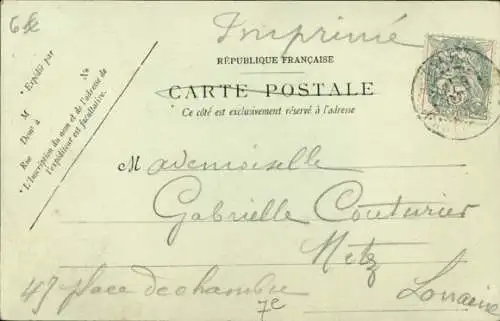 6f
Imprimé
RÉPUBLIQUE FRANÇAISE
CARTE POSTALE
Ce côté est exclusivement réservé à l'adresse
* Expédié par
M No
Demt à
Rue
* L'Inscription du nom et de l'adresse de
l'expéditeur est facultative.
Mademoiselle
Gabrielle Couturier
Metz
47 place de chambre
Lorraine
7e